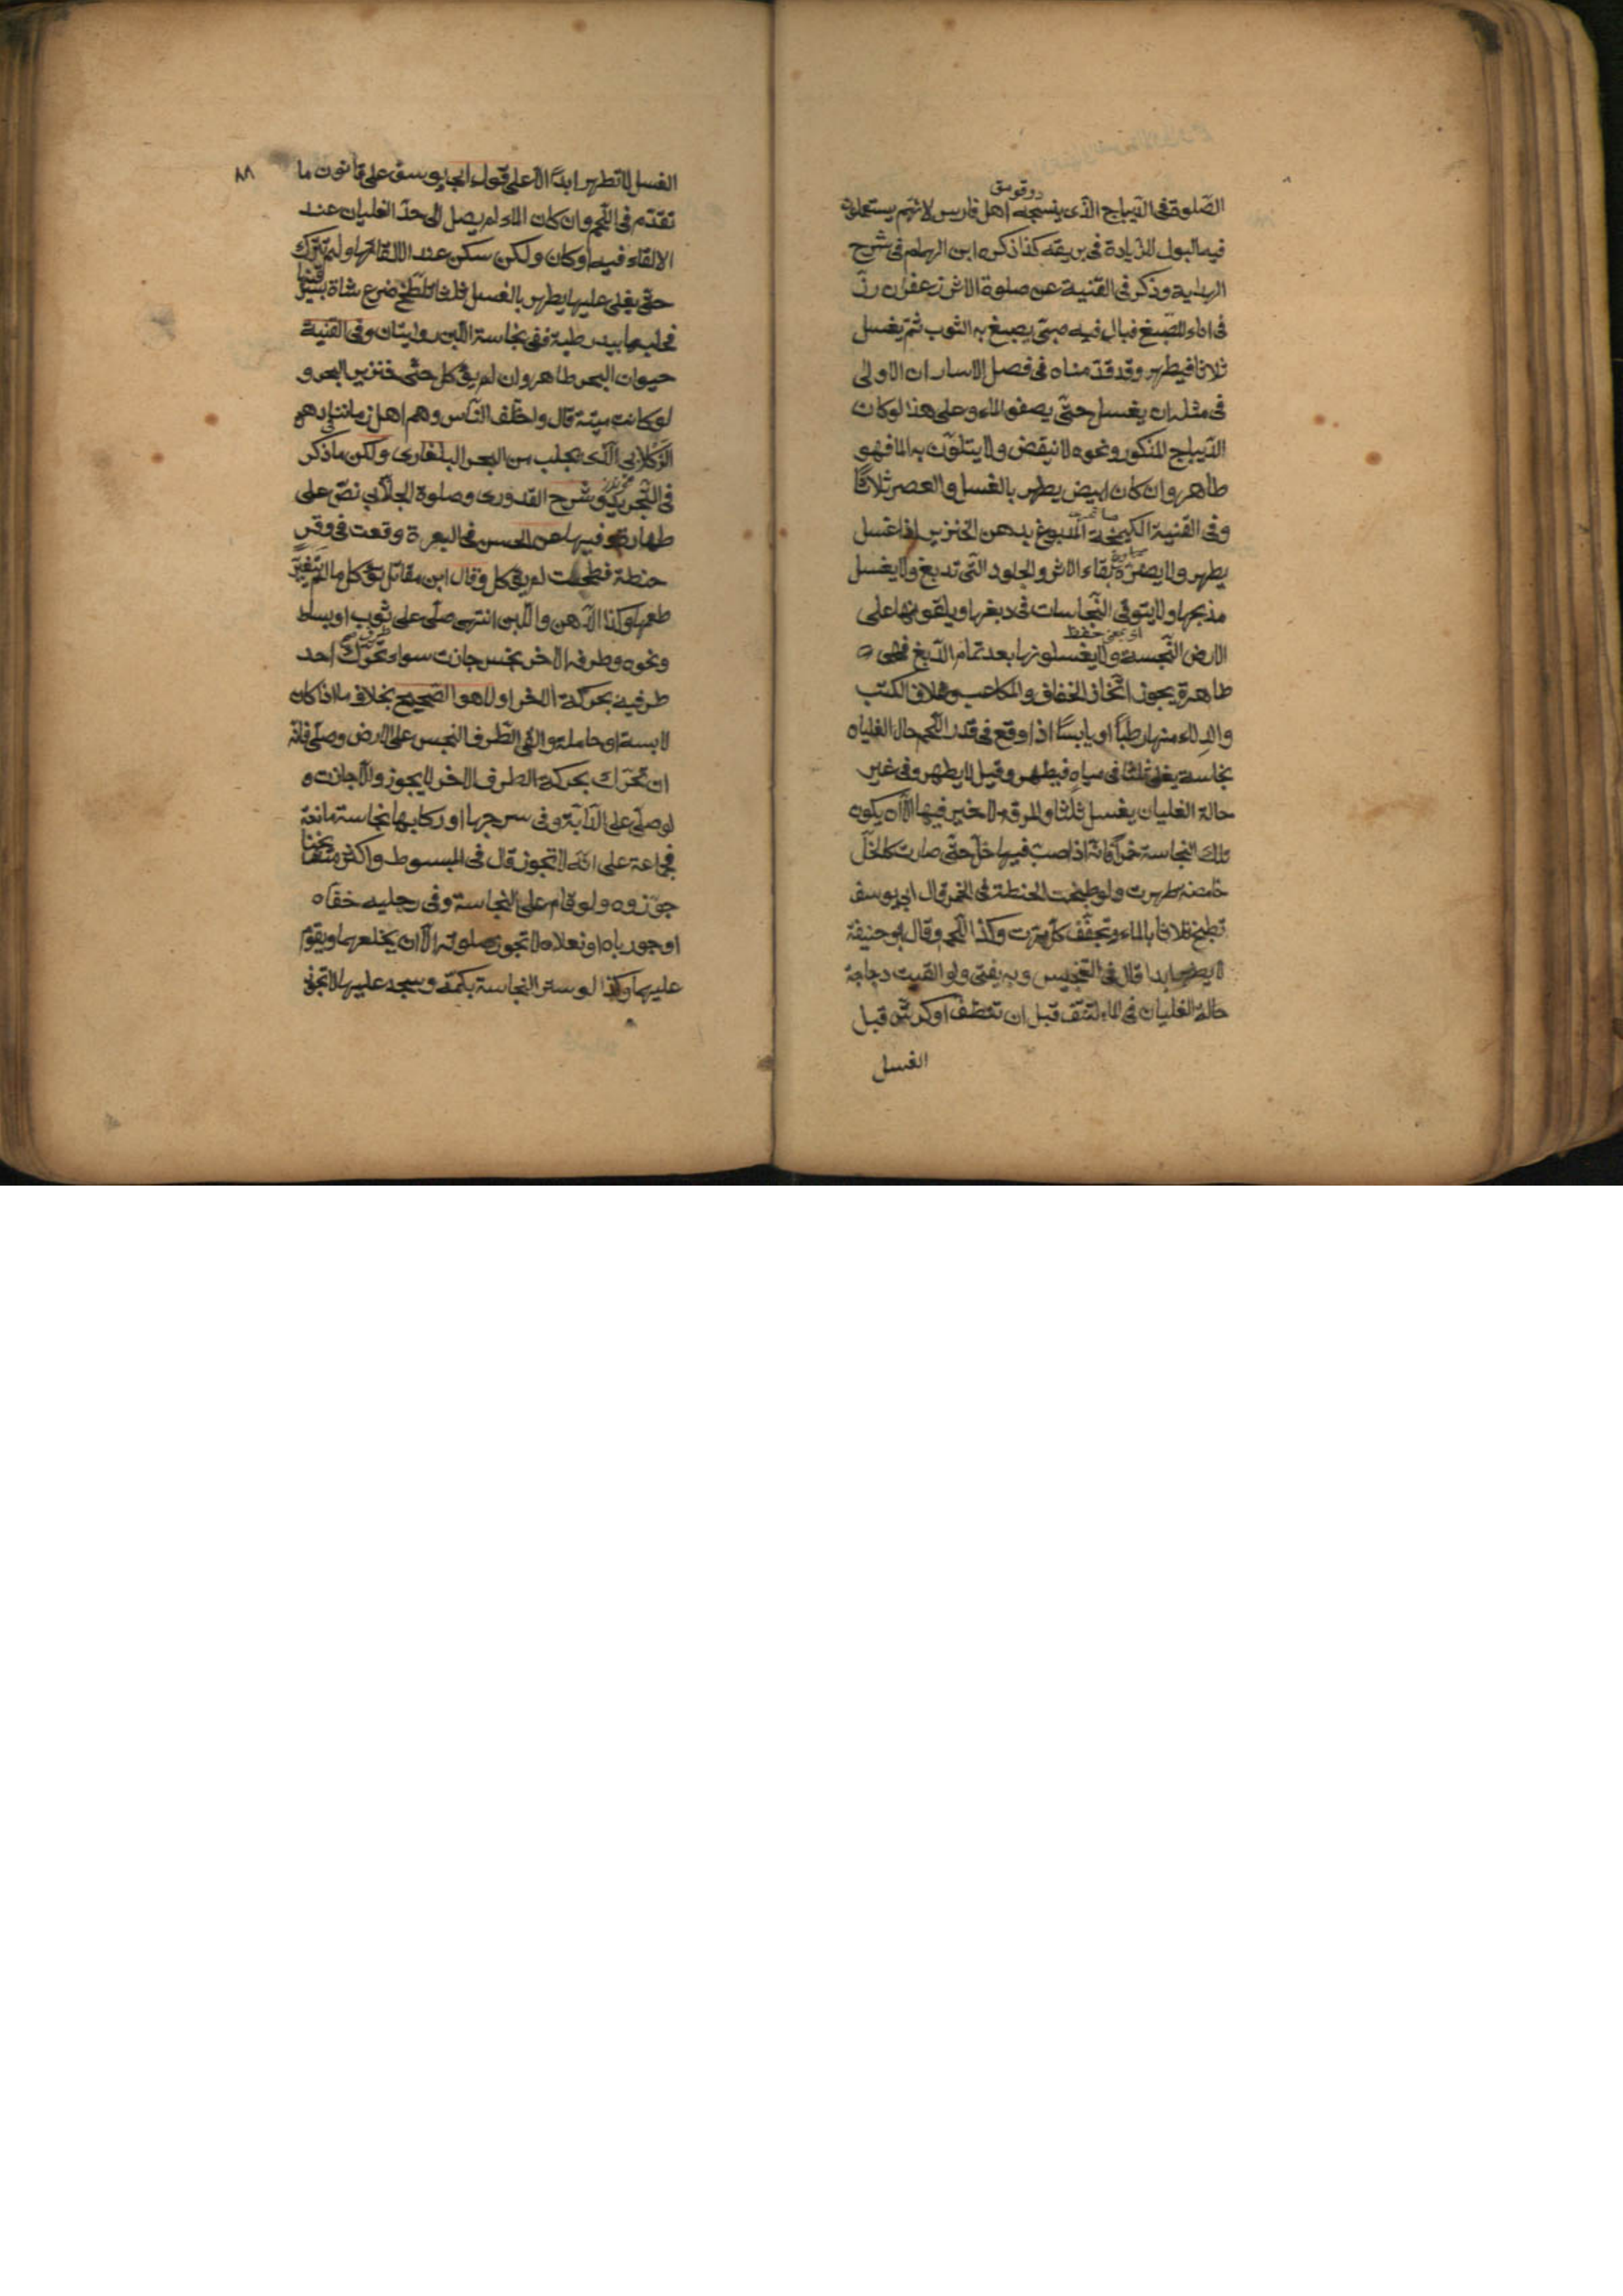 الصّلوة فى الدّيباج الّذى ينسجه اهل فارس لانّهم يستعملون
دوقومق
فيه البول للزّيادة فى بريقه كذا ذكره ابن الهمام فى شرح
الهداية وذكر فى القنية عن صلوة الاثر زعفران رذّ
فى اناء للصّبغ فبال فيه صبىّ يصبغ به الثوب ثمّ يغسل
ثلاثا فيطهر وقد قدّمناه فى فصل الاسار ان الاولى
فى مثله ان يغسل حتّى يصفو الماء وعلى هذا لو كان
الدّيباج المذكور ونحوه لا ينقض ولا يتلوّن به الماء فهو
طاهر وان كان ابيض يطهر بالغسل والعصر ثلاثًا
وفى القنية الكيمخت المدبوغ بدهن الخنزير اذا غسل
يطهر ولا يضرّه بقاء الاثر والجلود التى تدبغ ولا يغسل
مذبحها ولا يتوقى النّجاسات فى دبغها ويلقونها على
الارض النّجسة ولا يغسلونها بعد تمام الدّبغ فهى
طاهرة يجوز اتّخاذ الخفاف والمكاعب وغلاف الكتب
والدلاء منها رطبًا او يابسًا اذا وقع فى قدر اللّحم حال الغليان
نجاسة يغلى ثلثا فى مياه فيطهر وقيل لا يطهر وفى غير
حالة الغليان يغسل ثلثا والمرقة لا خير فيها الّا ان يكون
تلك النجاسة خمرًا فانّه اذا صبّ فيها خلّ حتّى صارت كالخلّ
حامضة طهرت ولو طبخت الحنطة فى الخمر قال ابو يوسف
تطبخ ثلاثا بالماء وتجفّف كلّ مرّة وكذا اللّحم وقال ابو حنيفة
لا يطهر ابدا قال فى التجنيس وبه يفتى ولو القيت دجاجة
حالة الغليان فى الماء لتنتف قبل ان تنظف او كرش قبل
الغسل
٨٨
الغسل لا تطهر ابدًا الّا على قول ابى يوسف على قانون ما
تقدّم فى اللّحم وان كان الماء لم يصل الى حدّ الغليان عند
الالقاء فيه او كان ولكن سكن عند الالقاء فيها ولم تترك
حتّى يغلى عليها يطهر بالغسل ثلاثا تلطّخ ضرع شاة بسرقينها
فحلبها بيد رطبة ففى نجاسة اللّبن روايتان وفى القنية
حيوان البحر طاهر وان لم يؤكل حتّى خنزير البحر و
لو كانت ميتة قال واختلف النّاس وهم اهل زماننا فى دهن
الّذى يجلب من البحر البلغارى ولكن ما ذكر
فى التّجريد وشرح القدورى وصلوة الجلّابى نصّ على
طهارته وفيها عن الحسن فى البعرة وقعت فى وقر
حنطة فطحنت لم يؤكل وقال ابن مقاتل يؤكل ما لم يتغيّر
طعمها وكذا الدّهن واللّبن انتهى صلّى على ثوب او بساط
ونحوه وطرفه الاخر نجس جازت سواء تحرّك احد
طرفيه بحركة الاخر او لا هو الصّحيح بخلاف ما اذا كان
لابسه او حامله والقى الطّرف النجس على الارض وصلّى فانّه
ان تحرّك بحركة الطرف الاخر لا يجوز والّا جازت و
لو صلّى على الدّابّة وفى سرجها او ركابها نجاسة مانعة
فجماعة على انّه لا تجوز قال فى المبسوط واكثر مشايخنا
جوّزوه ولو قام على النجاسة وفى رجليه خفّاه
او جورباه او نعلاه لا تجوز صلوته الّا ان يخلعهما ويقوم
عليهما وكذا لو ستر النجاسة بكمّه وسجد عليها لا تجوز